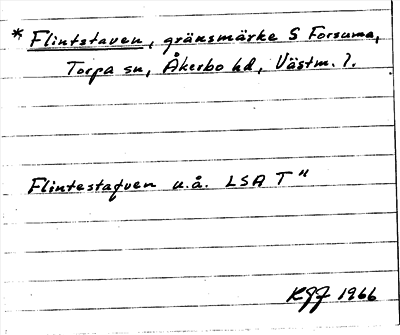 * Flintstaven, gränsmärke S Forsuma,
Torpa sn, Åkerbo hd, Västm. l.
Flintestafven u.å. LSA T"
KJJ 1966